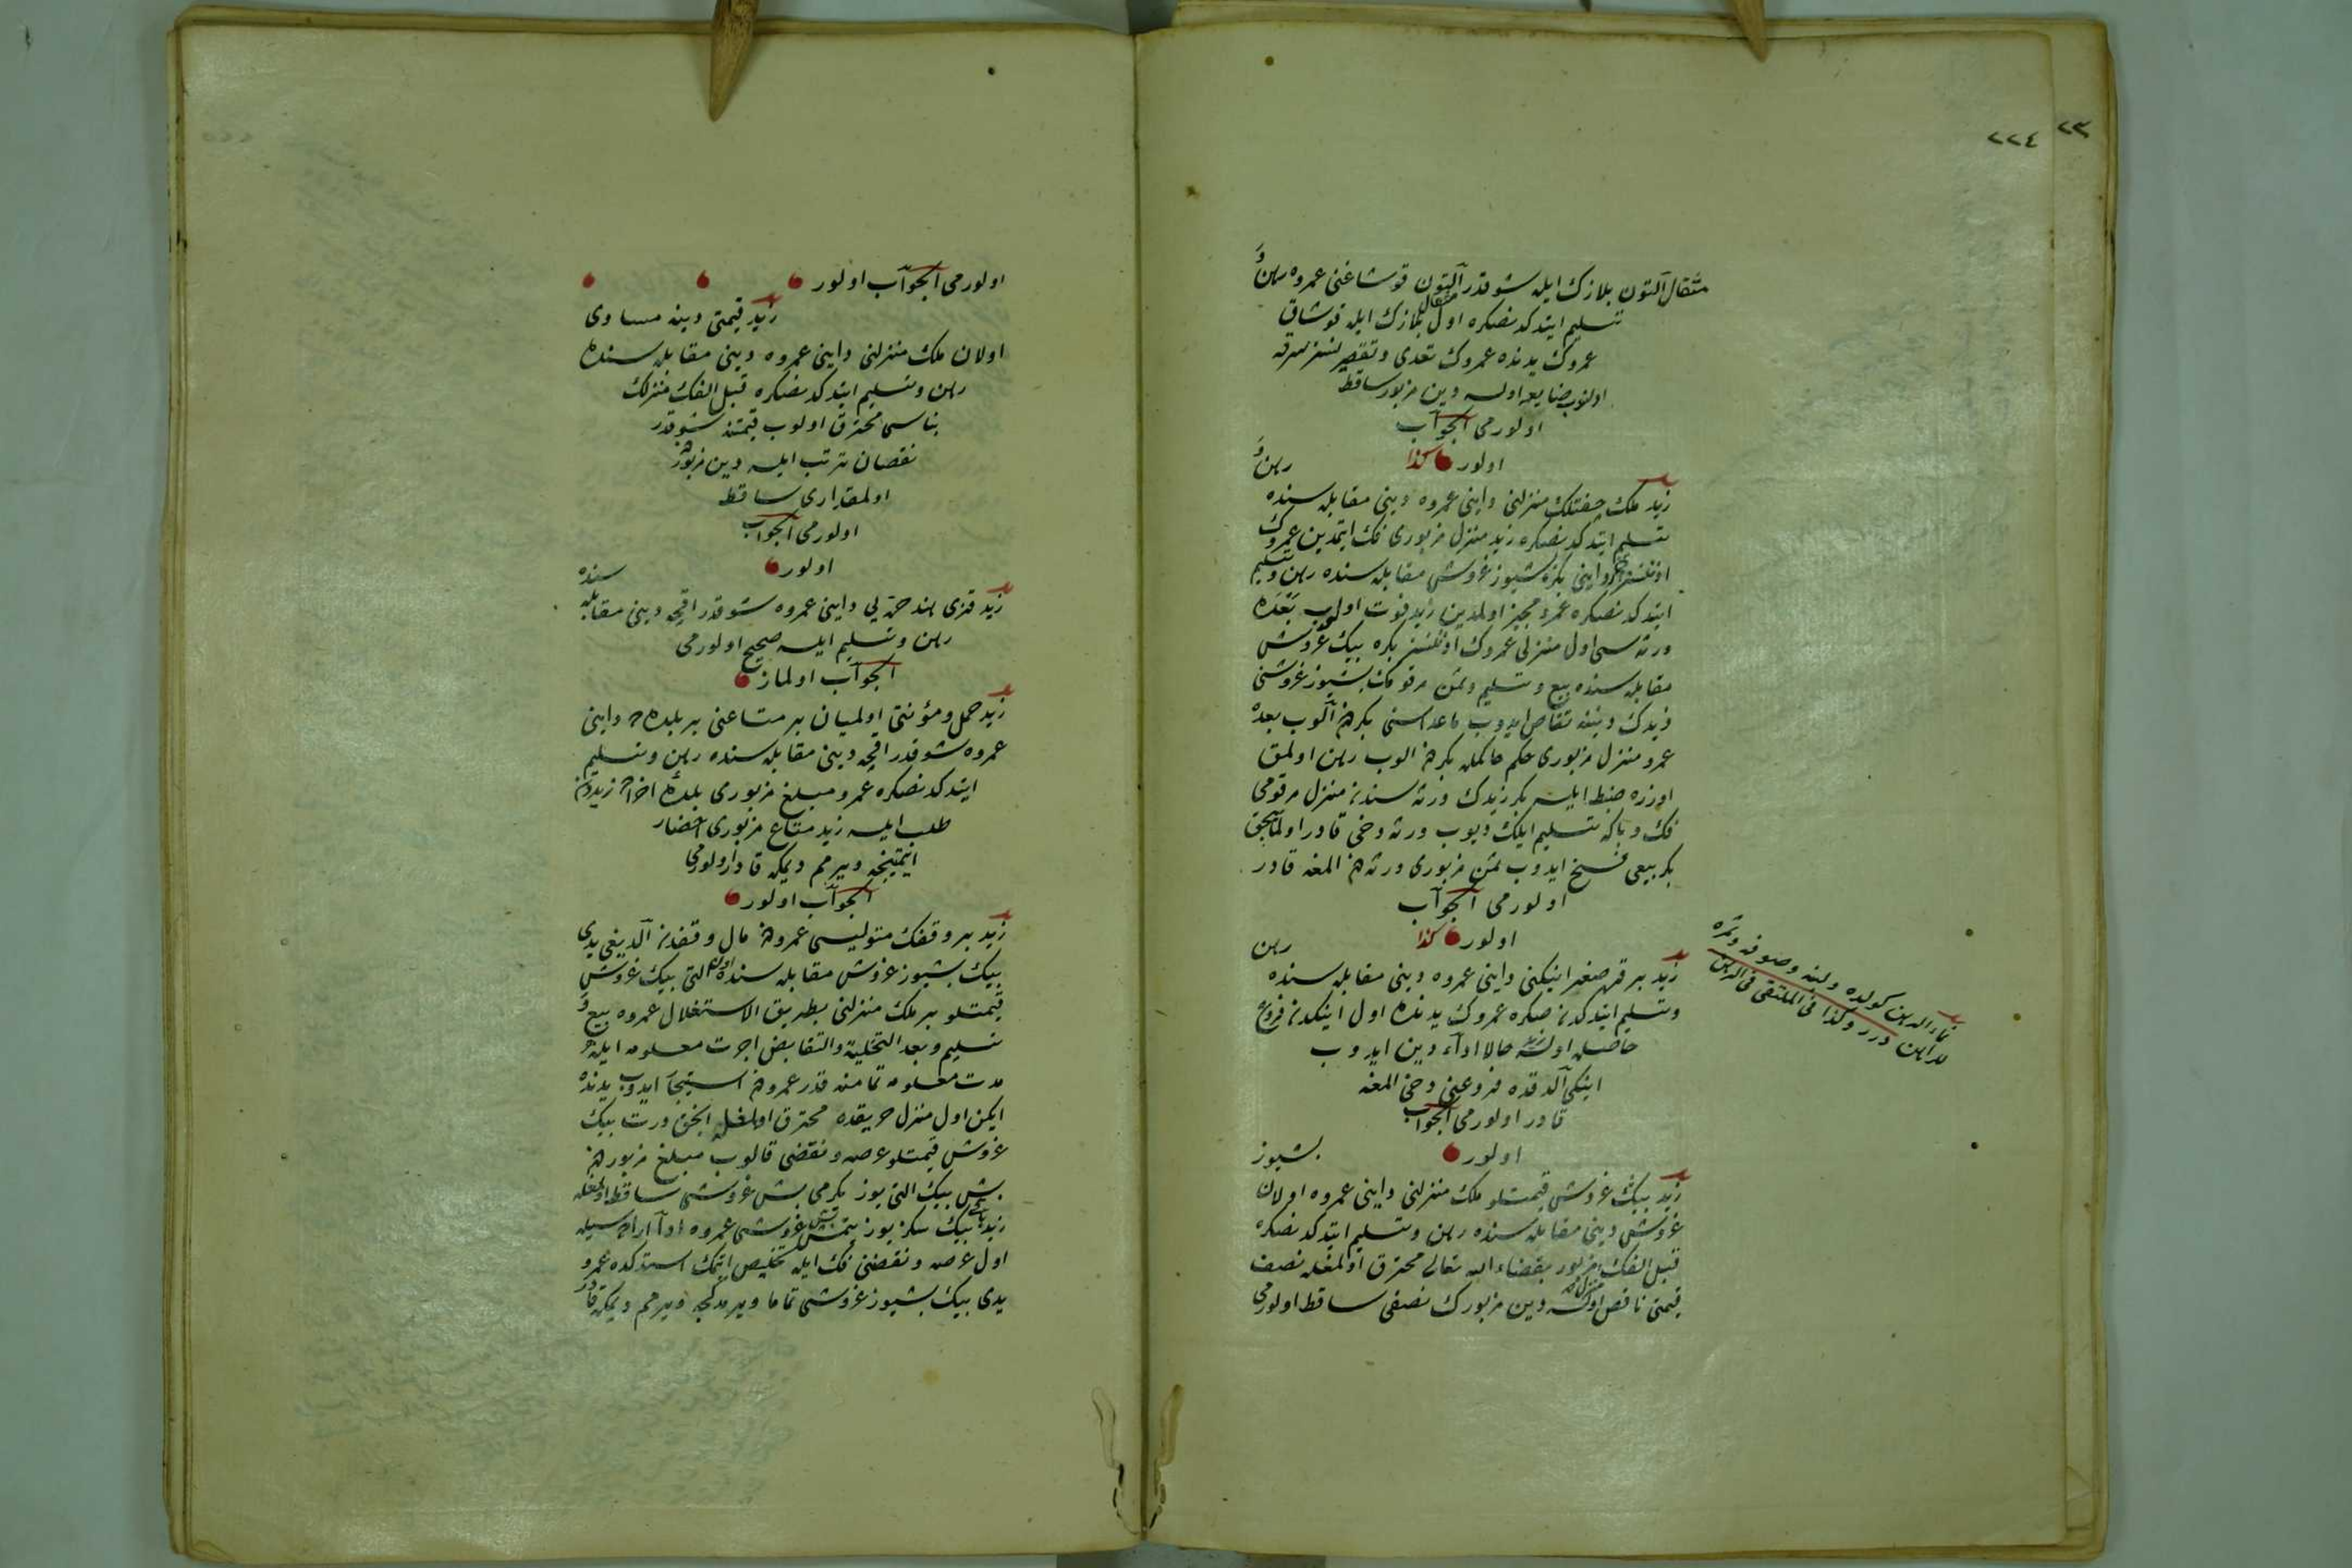 ٢٣
٢٢٤
مثقال آلتون بلازك ايله شو قدر آلتون قوشاغنى عمروه رهن و
تسليم ايتدكدنصكره اول مثقال بلازك ايله قوشاق
عمروك يدنده عمروك تعدى وتقصيرسز سرقه
اولنوب ضايع اولسه دين مزبور ساقط
اولورمى الجواب
اولور كذا
زيد ملك چفتلك منزلنى داينى عمروه دينى مقابله سنده رهن و
تسليم ايتدكدنصكره زيد منزل مزبورى فك ايتمدين عمروك
اذنسز داينى بكره بشيوز غروش مقابله سنده رهن وتسليم
ايتدكدنصكره عمرو مجيز اولمدين زيد فوت اولوب بعده
ورثه سى اول منزلى عمروك اذنسز بكره بيك غروش
مقابله سنده بيع وتسليم وثمن مرقومك بشيوز غروشنى
زيدك ديننه تقاص ايدوب ماعداسنى بكردن آلوب بعده
عمرو منزل مزبورى حكم حاكمله بكردن الوب رهن اولمق
اوزره ضبط ايلسه بكر زيدك ورثه سندن منزل مرقومى
فك وبكا تسليم ايلك ديوب ورثه دخى قادر اولمايجق
بكر بيعى فسخ ايدوب ثمن مزبورى ورثه دن المغه قادر
اولورمى الجواب
اولور كذا
زيد بر قره صغر اينكنى داينى عمروه دينى مقابله سنده رهن
وتسليم ايتدكدن صكره عمروك يدنده اول اينكدن فروع
حاصله اولسه زيد حالا اداء دين ايدوب
اينكى آلدقده فروعنى دخى المغه
قادر اولورمى الجواب
اولور
زيد بيك غروش قيمتلو ملك منزلنى داينى عمروه اولان بشيوز
غروش دينى مقابله سنده رهن وتسليم ايتدكدنصكره
قبل الفك منزل مزبور بقضاء الله تعالى محترق اولمغله نصف
قيمتى ناقص اولسه دين مزبورك نصفى ساقط اولورمى
نماء الرهن كولده ولبنه وصوفه وثمره
للراهن درر وكذا فى الملتقى فى الرهن
اولورمى الجواب اولور
زيد قيمتى دينه مساوى
اولان ملك منزلنى داينى عمروه دينى مقابله سنده
رهن وتسليم ايتدكدنصكره قبل الفك منزلك
بناسى محترق اولوب قيمتنه شو قدر
نقصان ترتب ايلسه دين مزبورك
اولمقدارى ساقط
اولورمى الجواب
اولور
زيد قزى هند حره يى داينى عمروه شو قدر اقچه دينى مقابله سنده
رهن وتسليم ايلسه صحيح اولورمى
الجواب اولماز
زيد حمل ومؤنتى اولميان بر متاعنى بر بلده ده داينى
عمروه شو قدر اقچه دينى مقابله سنده رهن وتسليم
ايتدكدنصكره عمرو مبلغ مزبورى بلده اخراده زيددن
طلب ايلسه زيد متاع مزبورى احضار
ايتمينجه ويرمم ديمكه قادر اولورمى
الجواب اولور
زيد بر وقفك متوليسى عمرودن مال وقفدن آلديغى يدى
بيك بشيوز غروش مقابله سنده اون التى بيك غروش
قيمتلو بر ملك منزلنى بطريق الاستغلال عمروه بيع و
تسليم وبعد التخلية والتقابض اجرت معلومه ايله
مدت معلومه تمامنه قدر عمرودن استيجار ايدوب يدنده
ايكن اول منزل حريقده محترق اولمغله انجق درت بيك
غروش قيمتلو عرصه ونقضى قالوب مبلغ مزبوردن
بش بيك التى يوز يكرمى بش غروشى ساقط اولمغله
زيد باقى بيك سكز يوز يتمش بش غروشى عمروه ادا ايله
اول عرصه ونقضنى فك ايله تخليص ايتمك استدكده عمرو
يدى بيك بشيوز غروشى تماما ويرمدكجه ويرمم ديمكه قادر